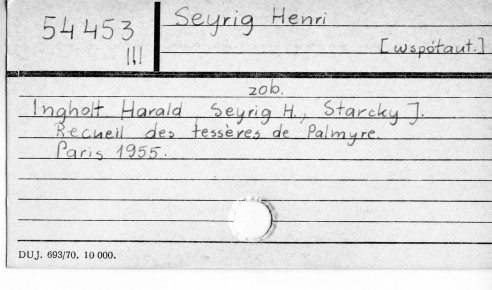 54453 III
Seyrig Henri
[współaut.]
zob.
Ingholt Harald Seyrig H., Starcky J.
Recueil des tessères de Palmyre.
Paris 1955.
DUJ. 693/70. 10 000.